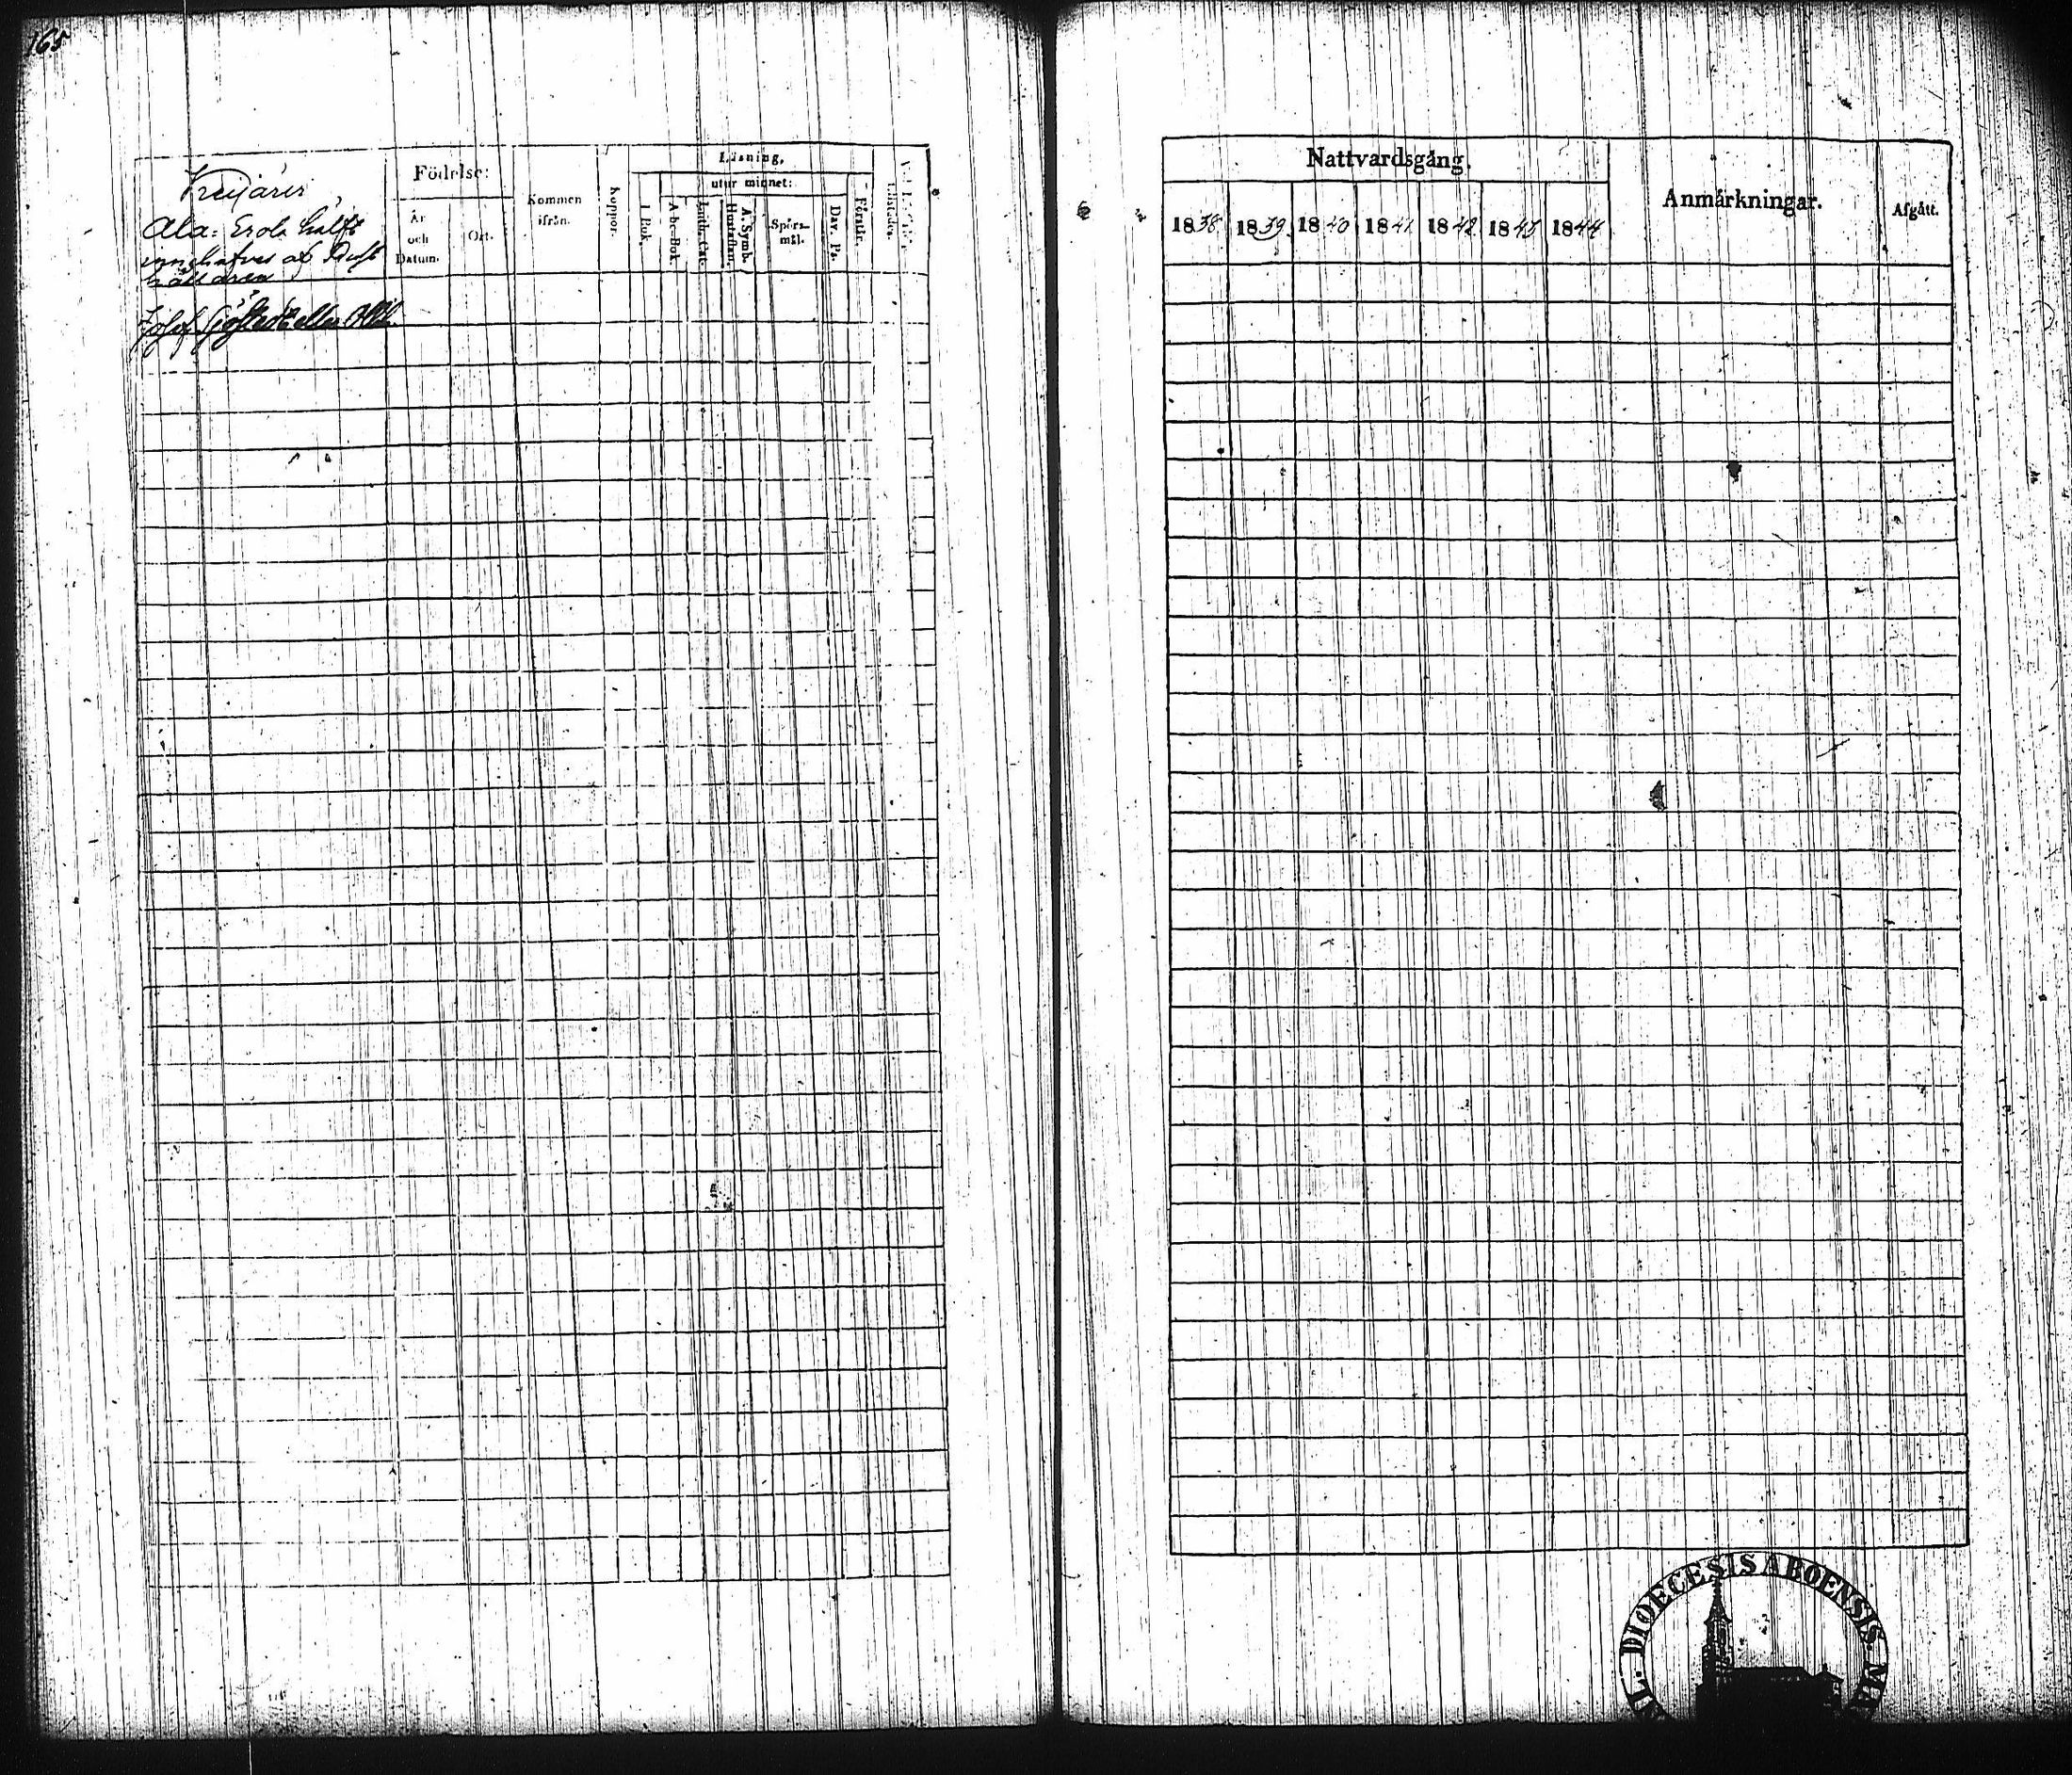 165
Ala: Erola hälft
innehafves af
Födelse:
År
och
Datum.
Ort.
Kommen
ifrån.
Koppor.
Läsning,
utur minnet:
I Bok.
A-b-c-Bok
Luth. Cat.
Hustaflan.
A. Symb.
Spörs-
mål.
Dav. Ps.
Förstår.
Nattvardsgång.
1838
1839.
1840
1841
1842
1843
1844
Anmärkningar.
Afgått.
DIOECESIS ABOENSIS.